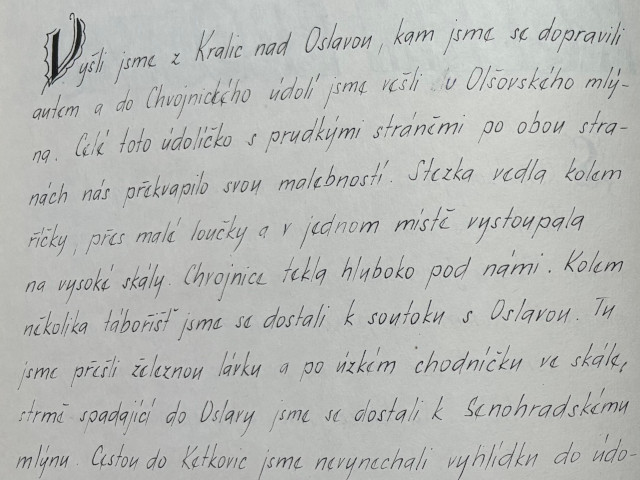 Vyšli jsme z Kralic nad Oslavou, kam jsme se dopravili
autem a do Chvojnického údolí jsme vešli u Olšovského mlý-
na. Celé toto údolíčko s prudkými stráněmi po obou stra-
nách nás překvapilo svou malebností. Stezka vedla kolem
říčky, přes malé loučky a v jednom místě vystoupala
na vysoké skály. Chvojnice tekla hluboko pod námi. Kolem
několika tábořišť jsme se dostali k soutoku s Oslavou. Tu
jsme přešli železnou lávku a po úzkém chodníčku ve skále,
strmě spadající do Oslavy jsme se dostali k Senohradskému
mlýnu. Cestou do Ketkovic jsme nevynechali vyhlídku do údo-